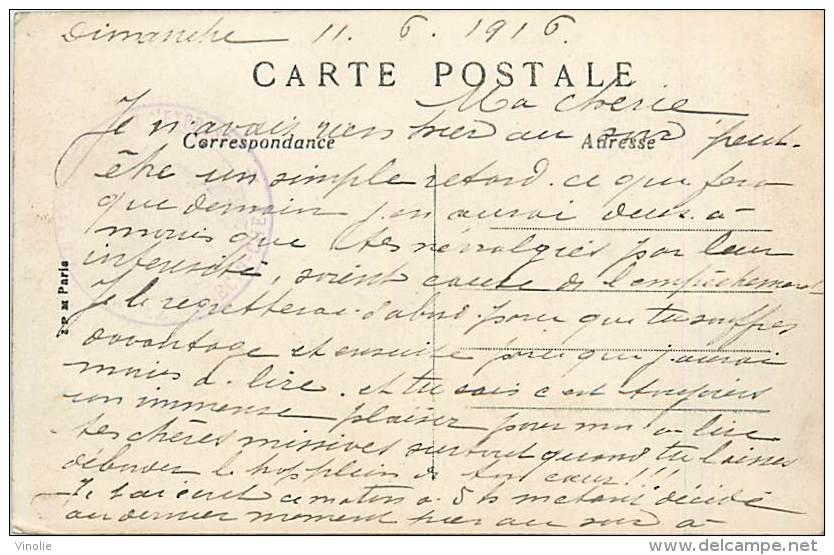 Dimanche 11. 6. 1916.
CARTE POSTALE
Ma chérie
Je n'avais rien hier au soir peut-
Correspondance
Adresse
être un simple retard. ce qui fera
que demain j'en aurai deux à
moins que tes névralgies par leur
intensité, soient cause de l'empêchement
Je le regretterai d'abord parce que tu souffres
davantage et ensuite parce que j'aurai
moins à lire. et tu sais c'est toujours
un immense plaisir pour moi de lire
tes chères missives surtout quand tu laisses
déborder le trop plein de ton cœur!!
Je t'ai écrit ce matin à 5 h m'étant décidé
au dernier moment hier au soir à
Paris
Vinolie
http://www.delcampe.net